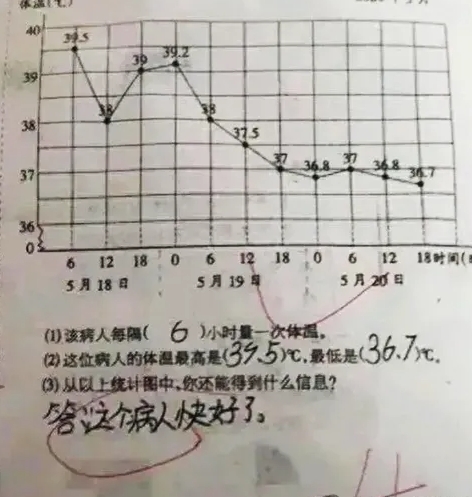 体温(℃)
40
39.5
39
39.2
39
38
38
38
37.5
37
36.8
37
36.8
36.7
37
36
0
6 12 18 0 6 12 18 0 6 12 18 时间(
5月18日 5月19日 5月20日
(1)该病人每隔( 6 )小时量一次体温。
(2)这位病人的体温最高是(39.5)℃,最低是(36.7)℃。
(3)从以上统计图中,你还能得到什么信息?
答:这个病人快好了。